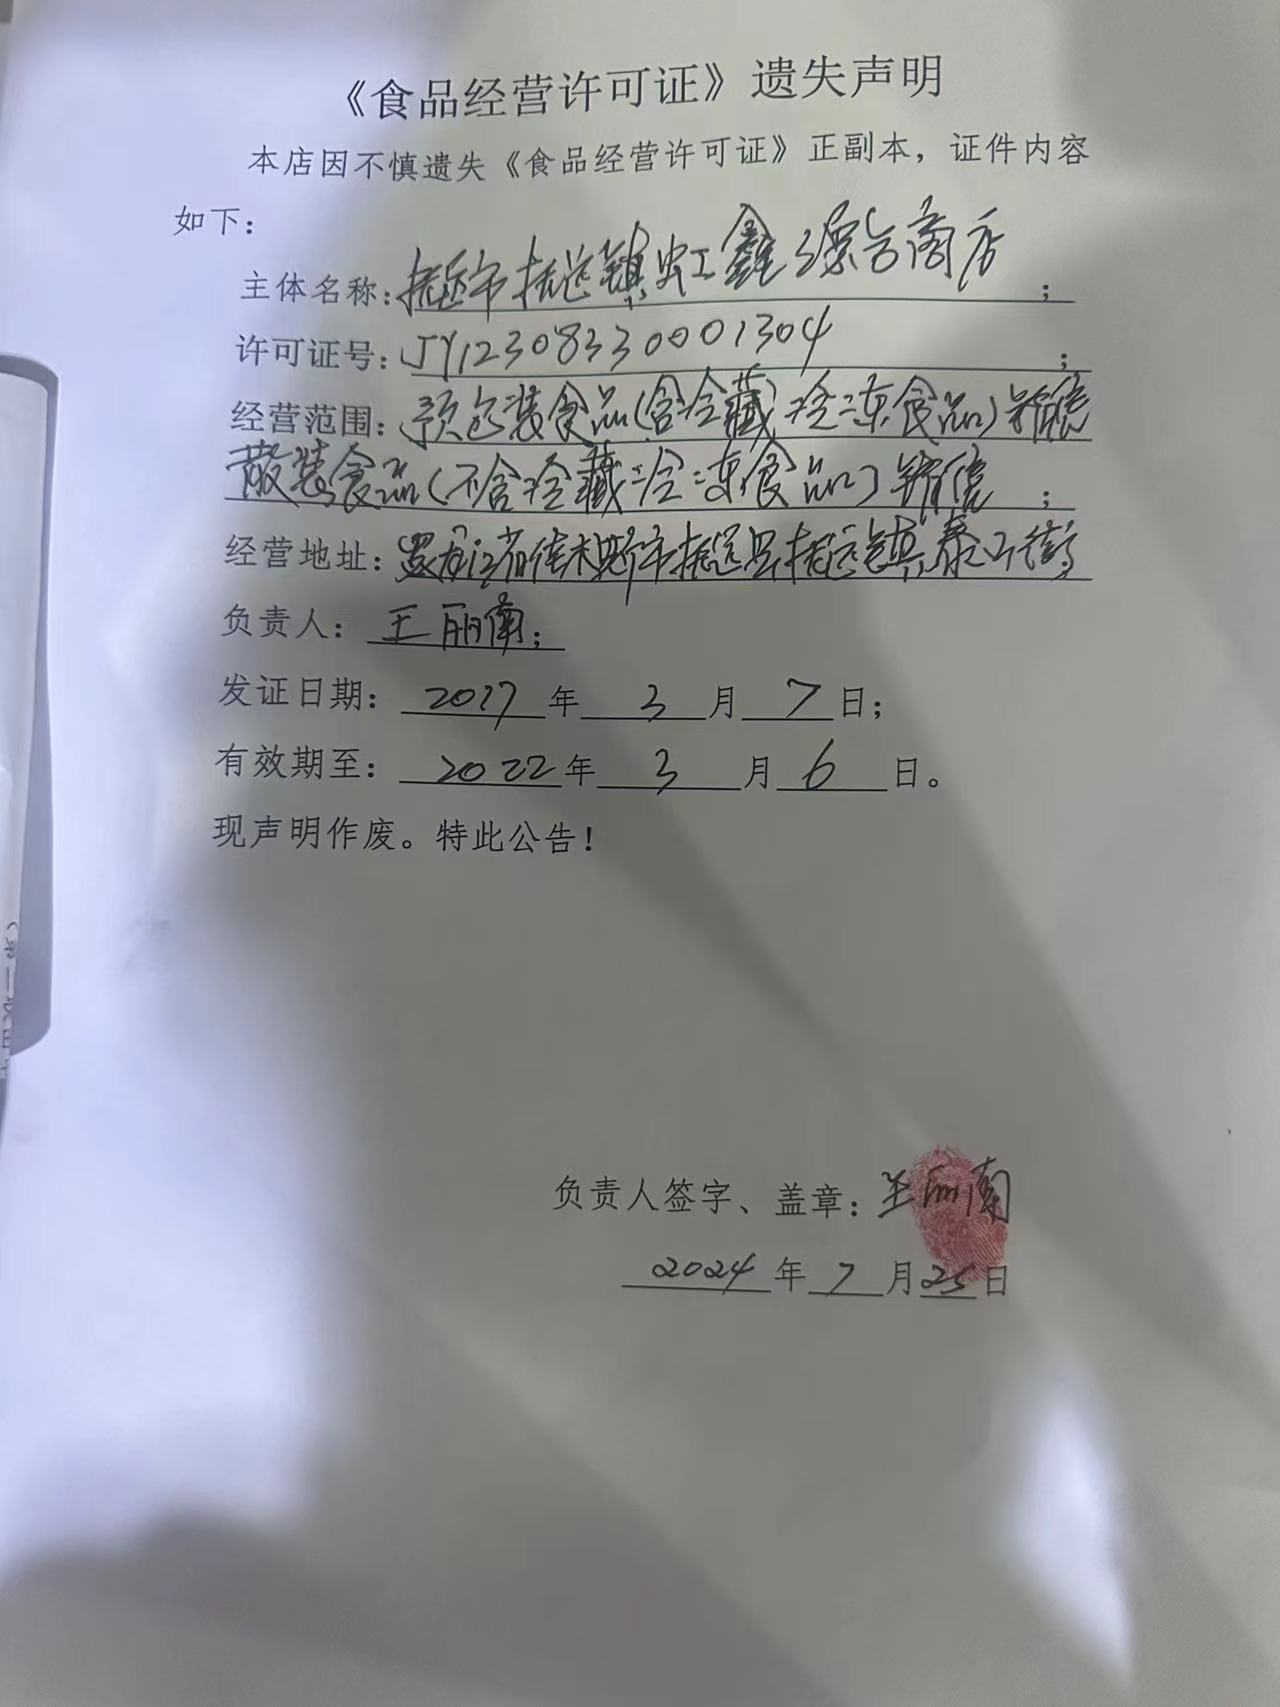 《食品经营许可证》遗失声明
本店因不慎遗失《食品经营许可证》正副本，证件内容
如下：
主体名称：抚远市抚远镇虹鑫源台商店；
许可证号：JY12308330001304；
经营范围：预包装食品(含冷藏冷冻食品)销售
散装食品(不含冷藏冷冻食品)销售；
经营地址：黑龙江省佳木斯市抚远县抚远镇泰山街
负责人：王丽南；
发证日期：2017年3月7日；
有效期至：2022年3月6日。
现声明作废。特此公告！
负责人签字、盖章：王丽南
2024年7月25日